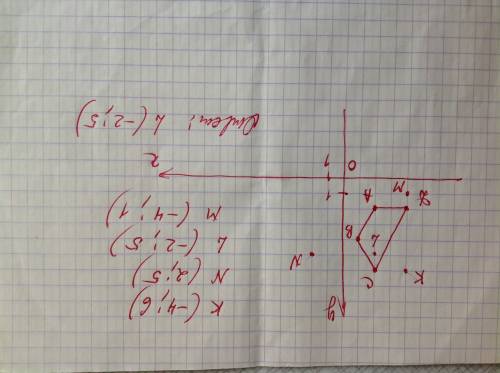 y
K (-4; 6)
N (2; 5)
L (-2; 5)
M (-4; 1)
C
K
L
N
B
A
D
M
1
0
1
x
Ответ: L (-2; 5)